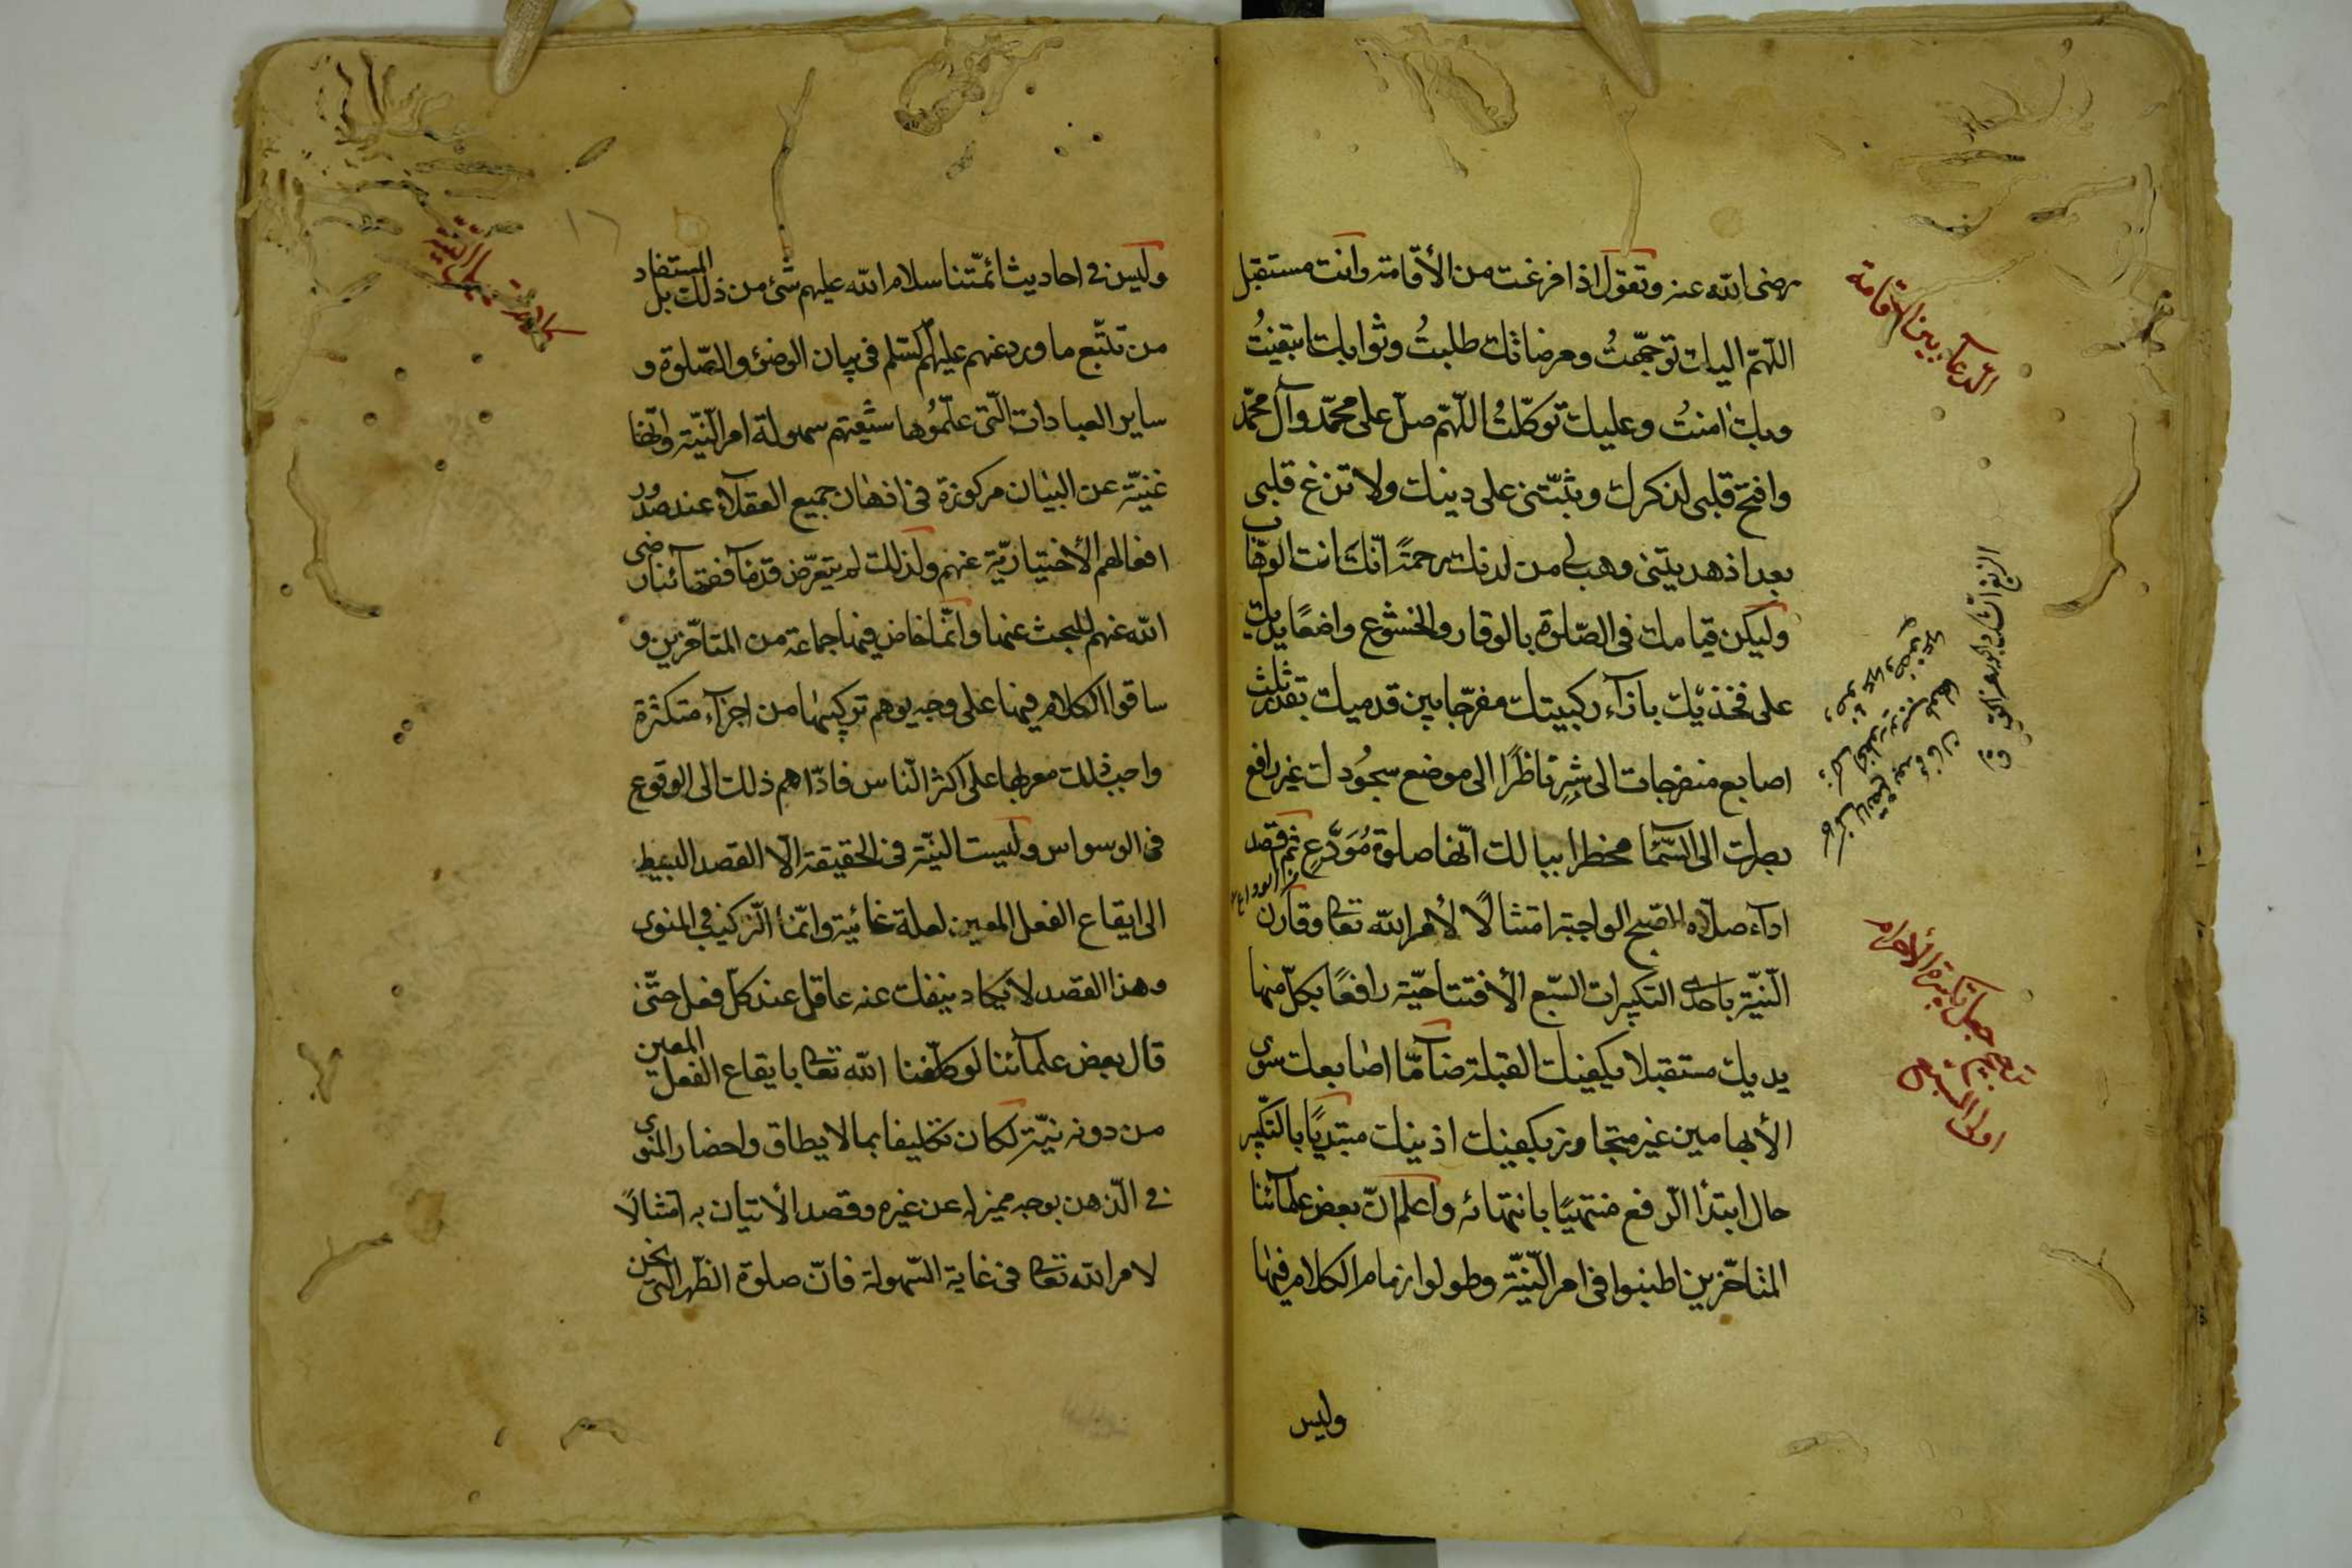 رضى الله عنه وتقول اذا فرغت من الأقامة وانت مستقبل
اللّهمّ اليك توجّهتُ ومرضاتك طلبتُ وثوابك ابتغيتُ
وبك امنتُ وعليك توكّلتُ اللّهمّ صلّ على محمّد وآل محمّد
وافتح قلبى لذكرك وثبّتنى على دينك ولا تزغ قلبى
بعد اذ هديتنى وهب لى من لدنك رحمة انّك انت الوهّاب
وليكن قيامك فى الصّلوة بالوقار والخشوع واضعًا يديك
على فخذيك بازآء ركبيتك مفرّجا بين قدميك بقدر ثلث
اصابع منفرجات الى شبرٍ ناظرًا الى موضع سجُودك غير رافع
بصرك الى السّمآء مخطرا ببالك انّها صلوة مُوَدّعٍ ثم اقصد
ادآء صلاة الصّبح الواجبة امتثالًا لأمر الله تعا وقارن
النّيّة باحدى التكبيرات السّبع الأفتتاحيّة رافعًا بكلّ منها
يديك مستقبلا بكفيك القبلة ضآمّا اصابعك سوى
الأبهامين غير متجاوز بكفيك اذنيك مبتديًا بالتكبير
حال ابتدأ الرّفع منتهيًا بانتهائه واعلم انّ بعض علمآئنا
المتاخّرين اطنبوا فى امر النّيّة وطولوا زمام الكلام فيها
وليس
الدّعآء بين الاقامة
وليس فى احاديث ائمّتنا سلام الله عليهم شئ من ذلك بل المستفاد
من تتّبع ما ورد عنهم عليهم السّلم فى بيان الوضؤ والصّلوة و
ساير العبادات الّتى علّمُوها شيعتهم سهولة امر النّيّة وانّها
غنيّة عن البيان مركوزة فى اذهان جميع العقلاء عند صدور
افعالهم الأختياريّة عنهم ولذلك لم يتعرّض قدمآ فقهآئنا رضى
الله عنهم للبحث عنها وانّما خاض فيها جماعة من المتاخّرين و
ساقوا الكلام فيها على وجه يوهم تركيبها من اجزآء متكثرة
واجب ذلك معرفتها على اكثر النّاس فادّاهم ذلك الى الوقوع
فى الوسواس وليست النيّة فى الحقيقة الّا القصد البسيط
الى ايقاع الفعل المعين لعلة غائية وانّما التركيب فى المنوى
وهذا القصد لا يكاد ينفك عنه عاقل عند كلّ فعل حتّى
قال بعض علمآئنا لو كلّفنا الله تعا بايقاع الفعل المعين
من دونه نيّة لكان تكليفا بما لا يطاق واحضار المنوى
فى الذّهن بوجه مميز له عن غيره وقصد الأتيان به امتثالًا
لامر الله تعا فى غاية السّهولة فانّ صلوة الظّهر الّتى نحن